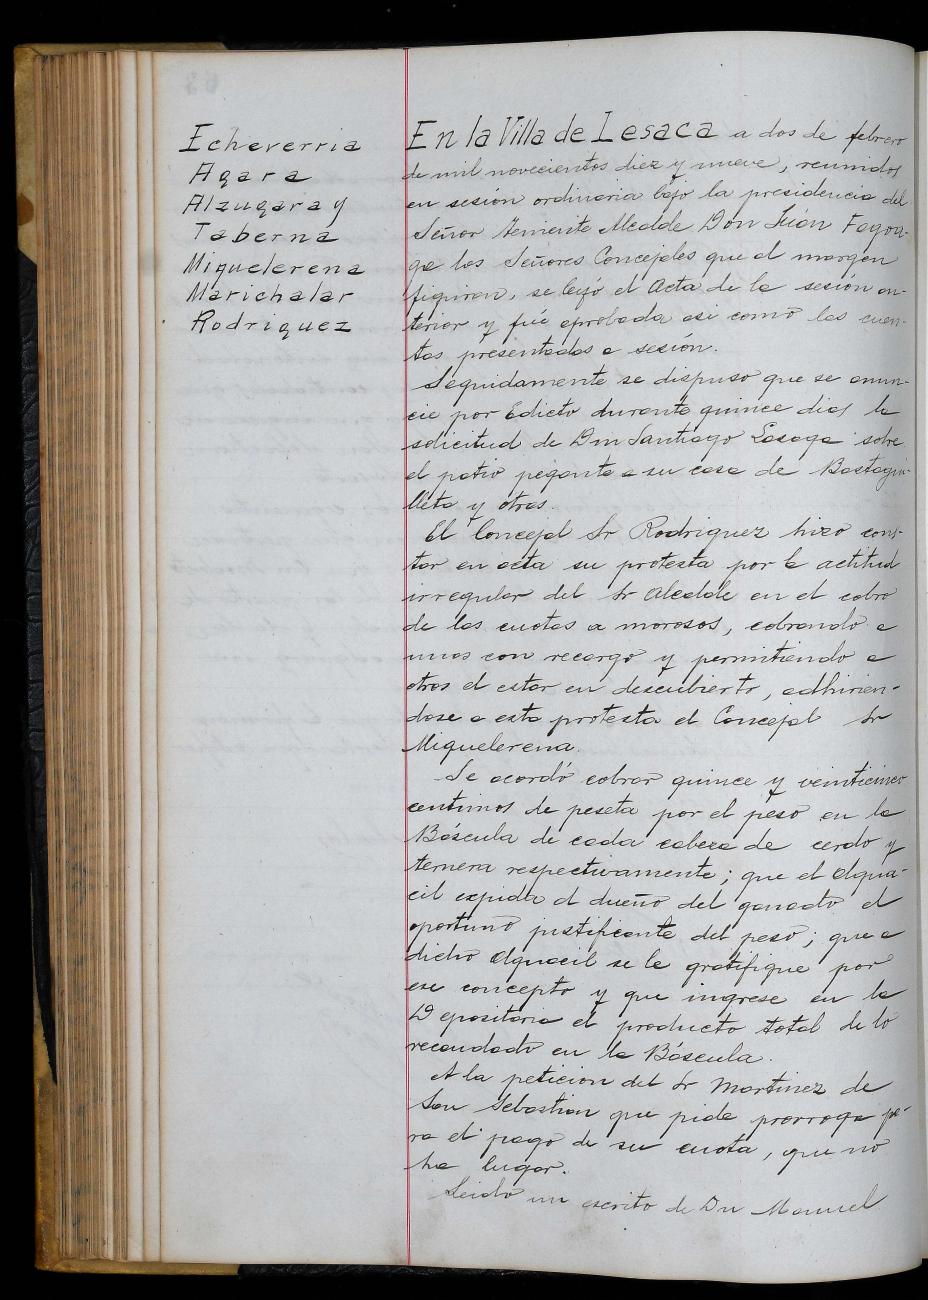 Echeverria
Agara
Alzugaray
Taberna
Miguelerena
Marichalar
Rodriguez
En la Villa de Lesaca a dos de febrero
de mil novecientos diez y nueve, reunidos
en sesión ordinaria bajo la presidencia del
Señor Teniente Alcalde Don Juan Fagoa-
ga los Señores Concejales que al margen
figuran, se leyó el Acta de la sesión an-
terior y fué aprobada asi como las cuen-
tas presentadas a sesión.
Seguidamente se dispuso que se anun-
cie por Edicto durante quince dias la
solicitud de Dn Santiago Lasaga sobre
el patio pegante a su casa de Bastagui-
lleta y otras.
El Concejal Sr Rodriguez hizo cons-
tar en acta su protesta por la actitud
irregular del Sr Alcalde en el cobro
de las cuotas a morosos, cobrando a
unos con recargo y permitiendo a
otros el estar en descubierto, adhirien-
dose a esta protesta el Concejal Sr
Miguelerena.
Se acordó cobrar quince y veinticinco
centimos de peseta por el peso en la
Báscula de cada cabeza de cerdo y
ternera respectivamente; que el Algua-
cil expida al dueño del ganado el
oportuno justificante del peso; que a
dicho Alguacil se le gratifique por
ese concepto y que ingrese en la
Depositaria el producto total de lo
recaudado en la Báscula.
A la peticion del Sr Martinez de
San Sebastian que pide prorroga pa-
ra el pago de su cuota, que no
ha lugar.
Leido un escrito de Dn Manuel